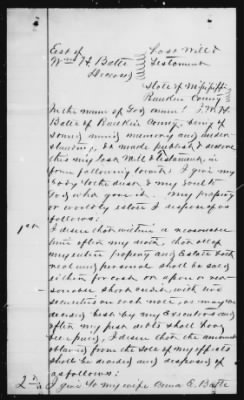 Est of
Wm H. Batte
Deceased
Last Will &
Testament
State of Mississippi
Rankin County
In the name of God amen! I. W. H.
Batte of Rankin County, being of
sound mind memory and under
standing, do make publish & declare
this my last Will & testament, in
form following towit: I give my
body to the dust & my soul to
God who gave it. My property
or worldly estate I dispose of as
follows:
1st
I desire that within a reasonable
time after my death, that all of
my entire property and estate both
real and personal shall be sold
either for cash, or upon a rea-
sonable short credit, with two
securities on each note, as may be
deemed best by my Executors and
after my just debts shall have
been paid, I desire that the amount
obtained from the sale of my effects
shall be divided and disposed of
as follows:
2nd
I give to my wife E. Batte